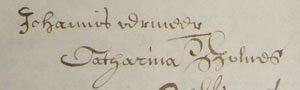 Johannis vermeer
Catharina Bolnes